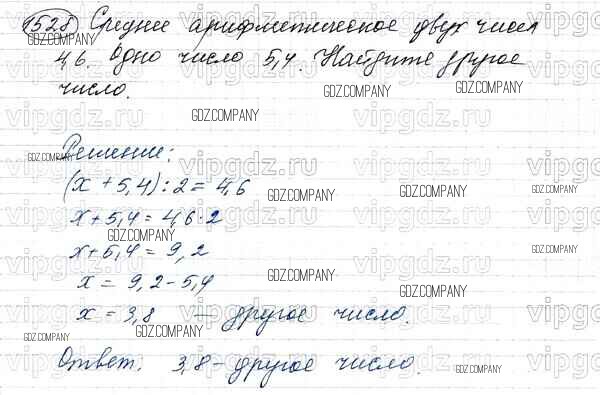 1528 Среднее арифметическое двух чисел
4,6. Одно число 5,4. Найдите другое
число.
Решение:
(x + 5,4) : 2 = 4,6
x + 5,4 = 4,6 · 2
x + 5,4 = 9,2
x = 9,2 - 5,4
x = 3,8 — другое число.
Ответ: 3,8 - другое число.
GDZ.COMPANY
vipgdz.ru